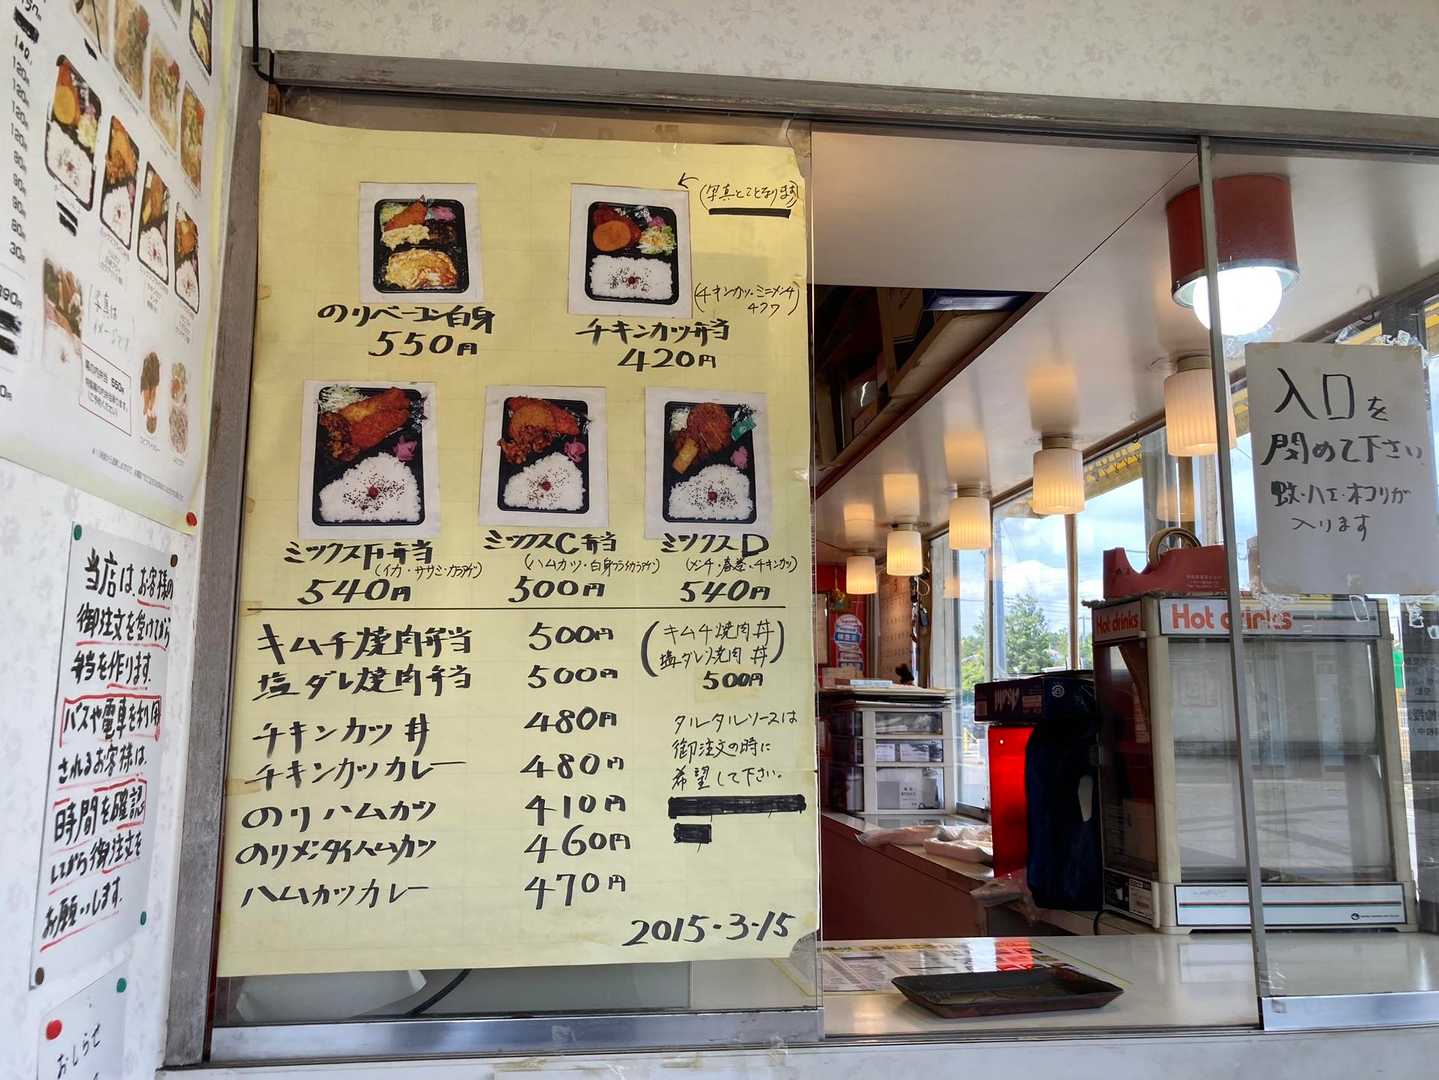 (写真とことなります)
のりベーコン白身
550円
(チキンカツ・ミニメンチ
チキンカツ弁当
420円
ミックスF弁当
(イカ・ササミ・カラアゲ)
540円
ミックスC弁当
(ハムカツ・白身フライカラアゲ)
500円
ミックスD
(メンチ・春巻・チキンカツ)
540円
キムチ焼肉弁当 500円
塩ダレ焼肉弁当 500円
(キムチ焼肉丼
塩ダレ焼肉丼)
500円
チキンカツ丼 480円
チキンカツカレー 480円
のりハムカツ 410円
のりメンタイハムカツ 460円
ハムカツカレー 470円
タルタルソースは
御注文の時に
希望して下さい。
2015・3・15
入口を
閉めて下さい
蚊・ハエ・ホコリが
入ります
Hot drinks
Hot drinks
当店は、お客様の
御注文を受けてから
弁当を作ります。
バスや電車を利用
されるお客様は、
時間を確認
しながら御注文を
お願いします。
おしらせ
140円
120円
120円
120円
120円
80円
90円
90円
80円
30円
写真は
イメージです
幕の内弁当 550円